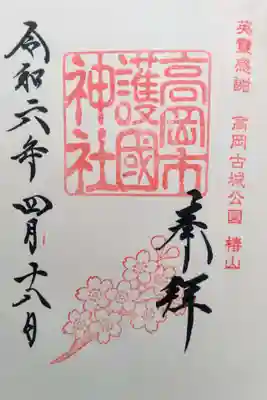 英霊感謝 高岡古城公園 椿山
奉拝
高岡市
護國
神社
令和六年四月十八日